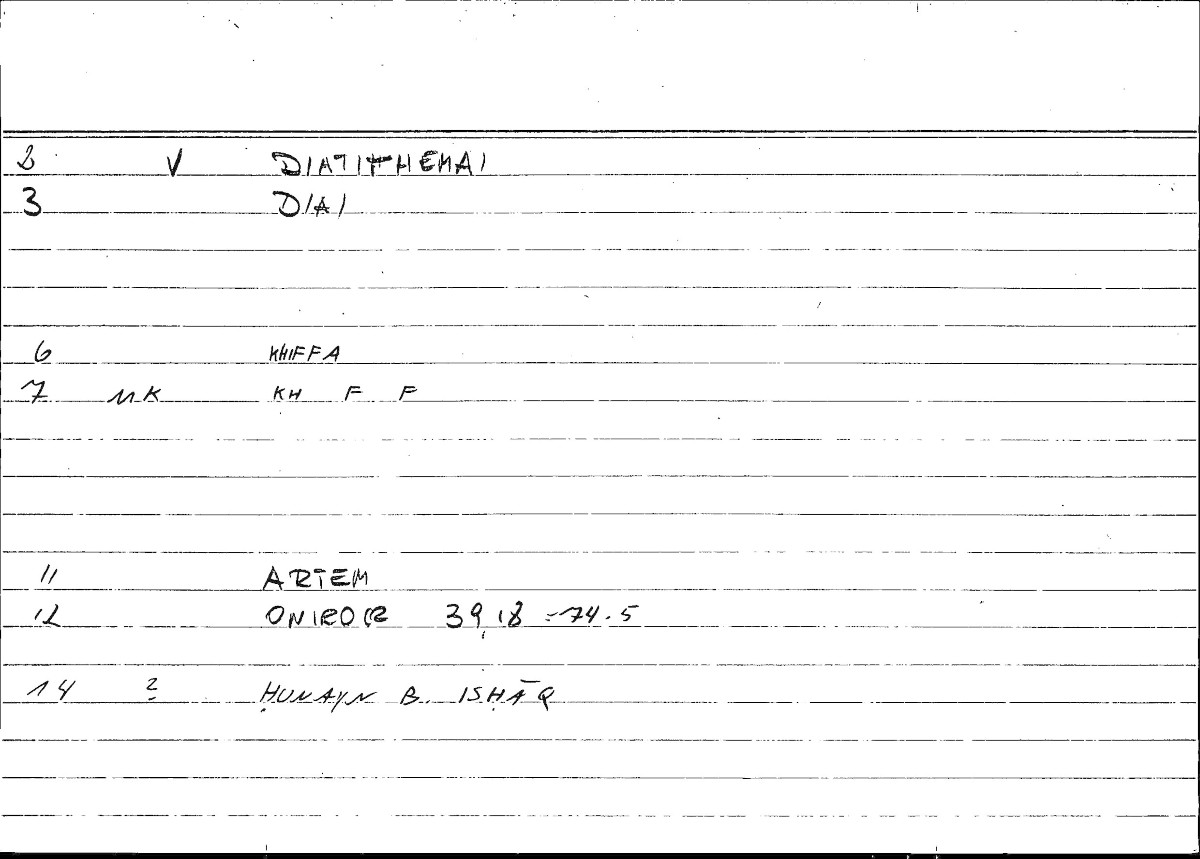 2 V DIATITHEMAI
3 DIAI
6 KHIFFA
7 MK KH F F
11 ARTEM
12 ONIROCR 39,18 = 74.5
14 2 ḤUNAYN B. ISḤĀQ